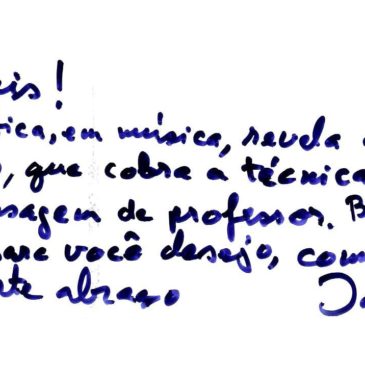 is!
ica, em música, revela
o, que cobra a técnica
sagem de professor. B
are você desejo, com
te abraço